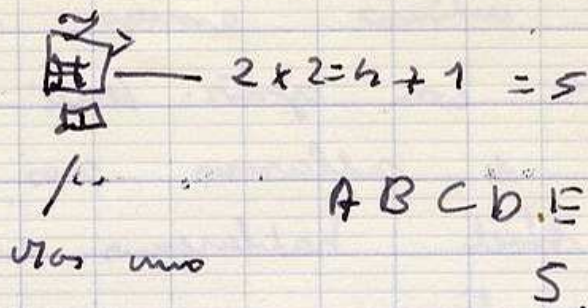 2 x 2 = 4 + 1 = 5
A B C D E
mas uno
5